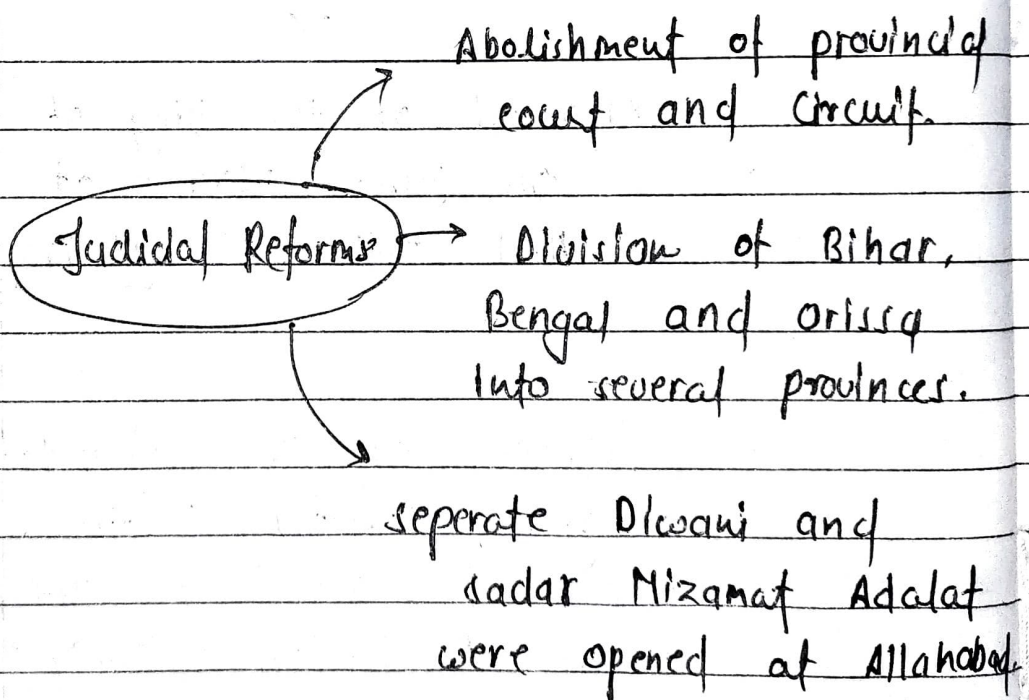 Abolishment of provincial
court and Circuit.
Judicial Reforms
Division of Bihar,
Bengal and orissa
Into several provinces.
seperate Diwani and
sadar Nizamat Adalat
were opened at Allahabad.